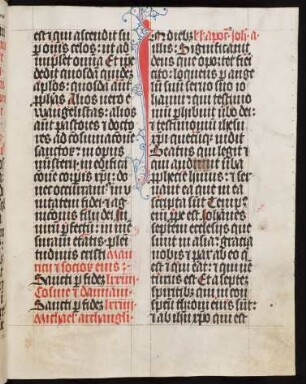 est et qui ascendit su
per omnes celos: ut ad
impleret omnia Et ipse
dedit quosdam quidem
aplos: quosdam aut
prophas Alios vero e
wangelistas: alios
aut pastores et docto
res ad consummacionem
sanctorum: in opus
ministerii: in edifica
cionem corporis xpi: do
nec occurramus in
unitatem fidei et ag
nicionis filii dei. In
virum perfectum: in
mensuram etatis. plei
tudinis cristi
Sancti per fidem
Cosme et damiani.
Sancti per fidem
Michael archangeli
In diebus illis:
Significavit
deus que oportet fieri
cito: loquens per ange
lum suum servo suo io
hanni: qui testimo
nium perhibuit verbo dei:
et testimonium ihesu
xpi quecumque vidit.
Beatus qui legit et
qui audit verba
prophetie huius: et ser
vat ea que in ea
scripta sunt Tempus
enim prope est. Johannes
septem ecclesiis que
sunt in asia: gracia
vobis et pax ab eo qui
est et qui erat: et qui ven
turus est Et a septem
spiritibus qui in con
spectu throni eius sunt:
et ab ihesu xpo qui est